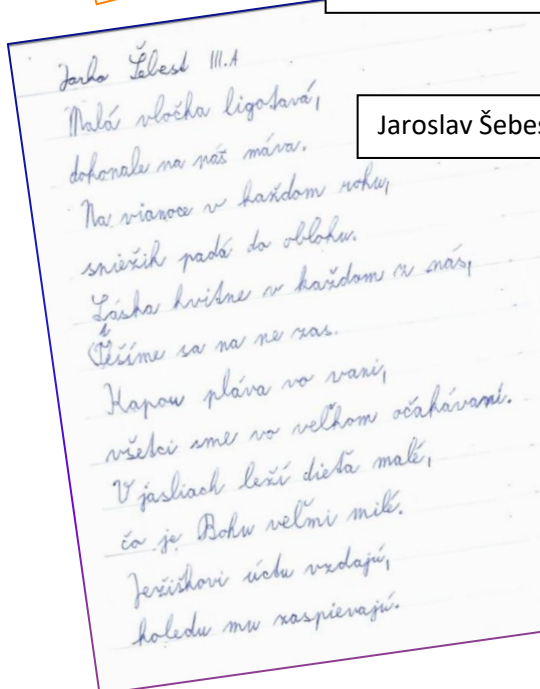 Jarko Šebest III.A
Malá vločka ligotavá,
Jaroslav Šebes
dokonale na nás máva.
Na vianoce v každom roku,
sniežik padá do obloku.
Láska kvitne v každom z nás,
Tešíme sa na ne zas.
Kapor pláva vo vani,
všetci sme vo veľkom očakávaní.
V jasliach leží dieťa malé,
čo je Bohu veľmi milé.
Ježiškovi úctu vzdajú,
koledu mu zaspievajú.